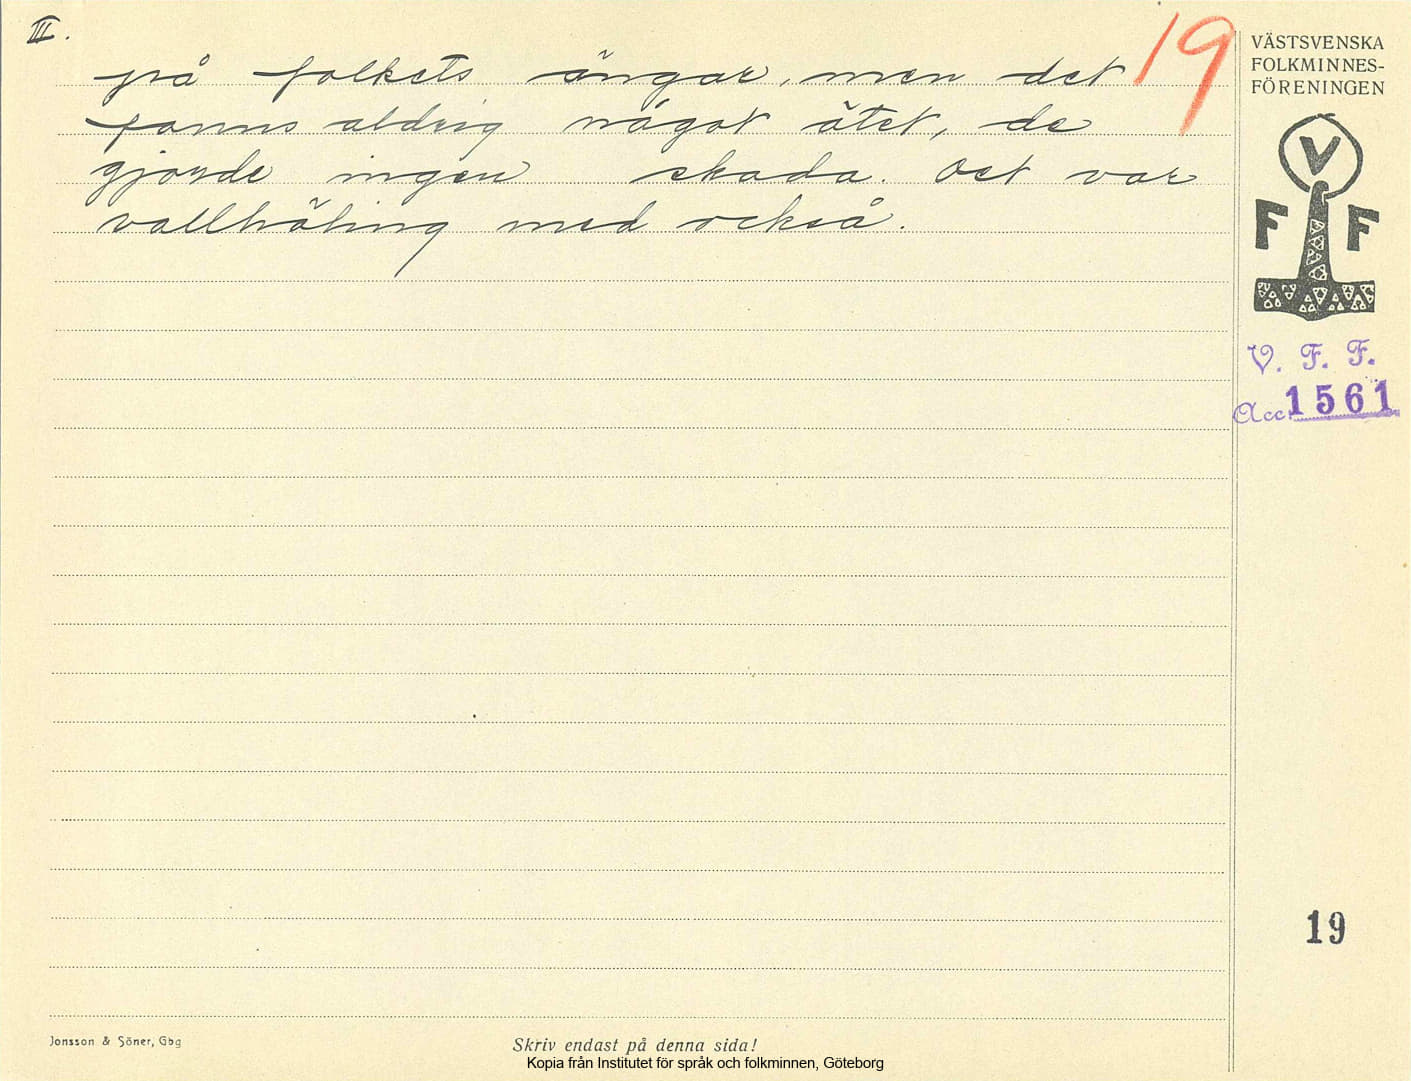 III.
på folkets ängar, men det
fanns aldrig något ätet, de
gjorde ingen skada. Det var
vallhäling med också.
19
VÄSTSVENSKA
FOLKMINNES-
FÖRENINGEN
V
F F
V. F. F.
Acc. 1561
19
Jonsson & Söner, Gbg
Skriv endast på denna sida!
Kopia från Institutet för språk och folkminnen, Göteborg